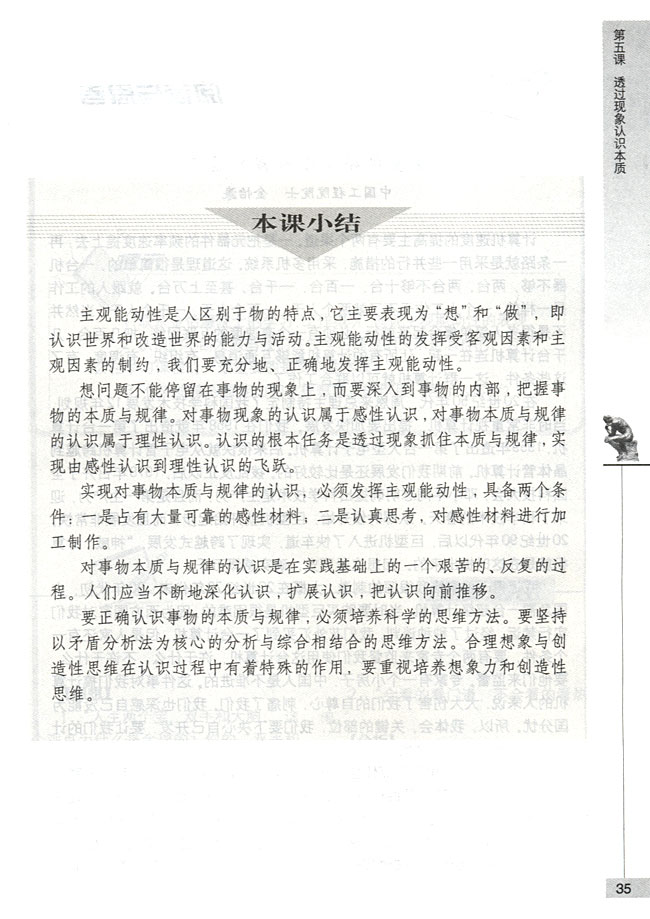 第五课 透过现象认识本质
本课小结
主观能动性是人区别于物的特点，它主要表现为“想”和“做”，即
认识世界和改造世界的能力与活动。主观能动性的发挥受客观因素和主
观因素的制约，我们要充分地、正确地发挥主观能动性。
想问题不能停留在事物的现象上，而要深入到事物的内部，把握事
物的本质与规律。对事物现象的认识属于感性认识，对事物本质与规律
的认识属于理性认识。认识的根本任务是透过现象抓住本质与规律，实
现由感性认识到理性认识的飞跃。
实现对事物本质与规律的认识，必须发挥主观能动性，具备两个条
件：一是占有大量可靠的感性材料；二是认真思考，对感性材料进行加
工制作。
对事物本质与规律的认识是在实践基础上的一个艰苦的、反复的过
程。人们应当不断地深化认识，扩展认识，把认识向前推移。
要正确认识事物的本质与规律，必须培养科学的思维方法。要坚持
以矛盾分析法为核心的分析与综合相结合的思维方法。合理想象与创
造性思维在认识过程中有着特殊的作用，要重视培养想象力和创造性
思维。
35